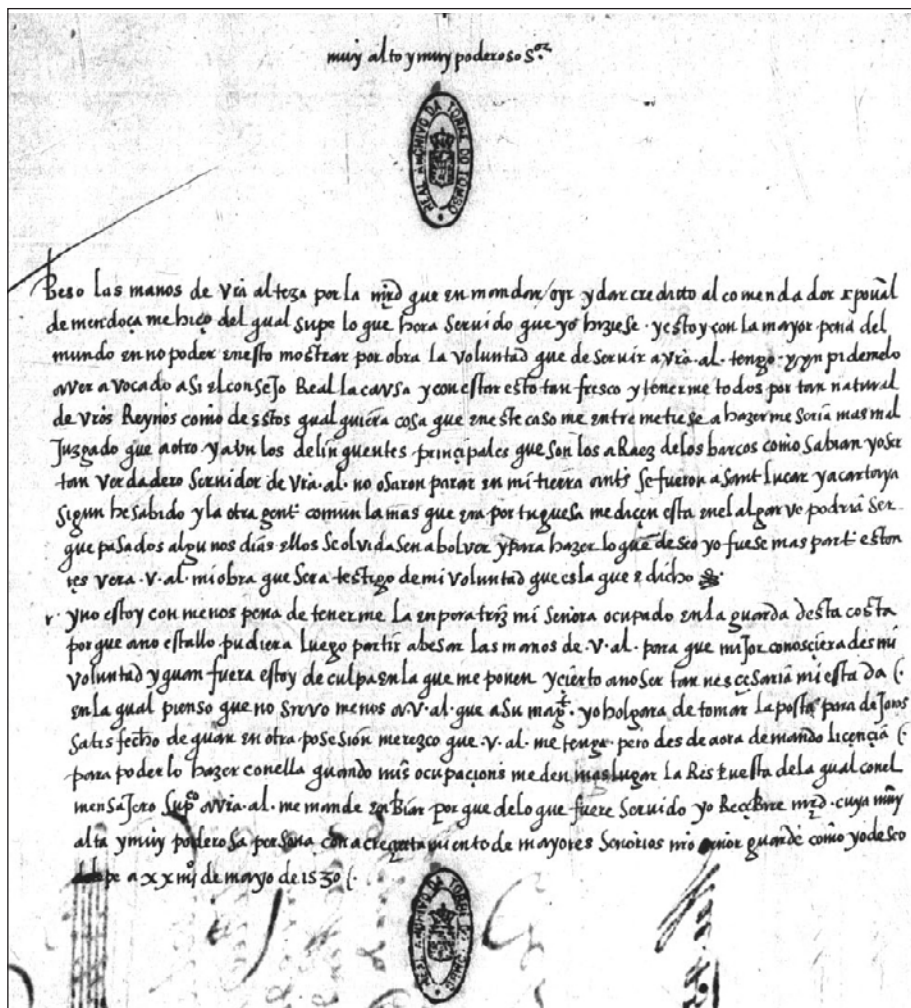 muy alto y muy poderoso Sor
REAL ARCHIVO DA TORRE DO TOMBO
Beso las manos de vra alteza por la mrd que en mandar oyr y dar credito al comendador xpoual
de mendoça me hiço del qual supe lo que hera seruido que yo hiziese · y estoy con la mayor pena del
mundo en no poder en esto mostrar por obra la voluntad que de seruir a vra · al · tengo · y ynpidemelo
aver avocado a si el consejo Real la cavsa y con estar esto tan fresco y tenerme todos por tan natural
de vros Reynos como destos qualquiera cosa que en este caso me entremetiese a hazer me seria mas mal
Juzgado que a otro y avn los delinquentes prinçipales que son los aRaez de los barcos como sabian yo ser
tan verdadero seruidor de vra · al · no osaron parar en mi tierra antes se fueron a sant lucar y a cartaya
sigun he sabido y la otra gente comun la mas que era portuguesa me diçen esta en el algarvo podria ser
que pasados algunos dias ellos se olvidasen a bolver y para hazer lo que deseo yo fuese mas parte eston
çes vera · v · al · mi obra que sera testigo de mi voluntad que es la que e dicho
y no estoy con menos pena de tenerme la enperatriz mi señora ocupado en la guarda desta costa
porque a no estallo pudiera luego partir a besar las manos de · v · al · para que mijor conosçiera des mi
voluntad y quan fuera estoy de culpa en la que me ponen y çierto a no ser tan nesçesaria mi estada (·
en la qual pienso que no sirvo menos a v · al · que a su magt · yo holgara de tomar la posta para dejaros
satisfecho de quan en otra posesion merezco que · v · al · me tenga · pero desde aora demando liçençia (·
para poderlo hazer con ella quando mis ocupaçiones me den mas lugar la Respuesta de la qual con el
mensajero supco a vra · al · me mande enbiar porque de lo que fuere seruido yo Reçebire mrd · cuya muy
alta y muy poderosa persona con acreçentamiento de mayores señorios nro señor guarde como yo deseo
a xxiiij de mayo de 1530 (·